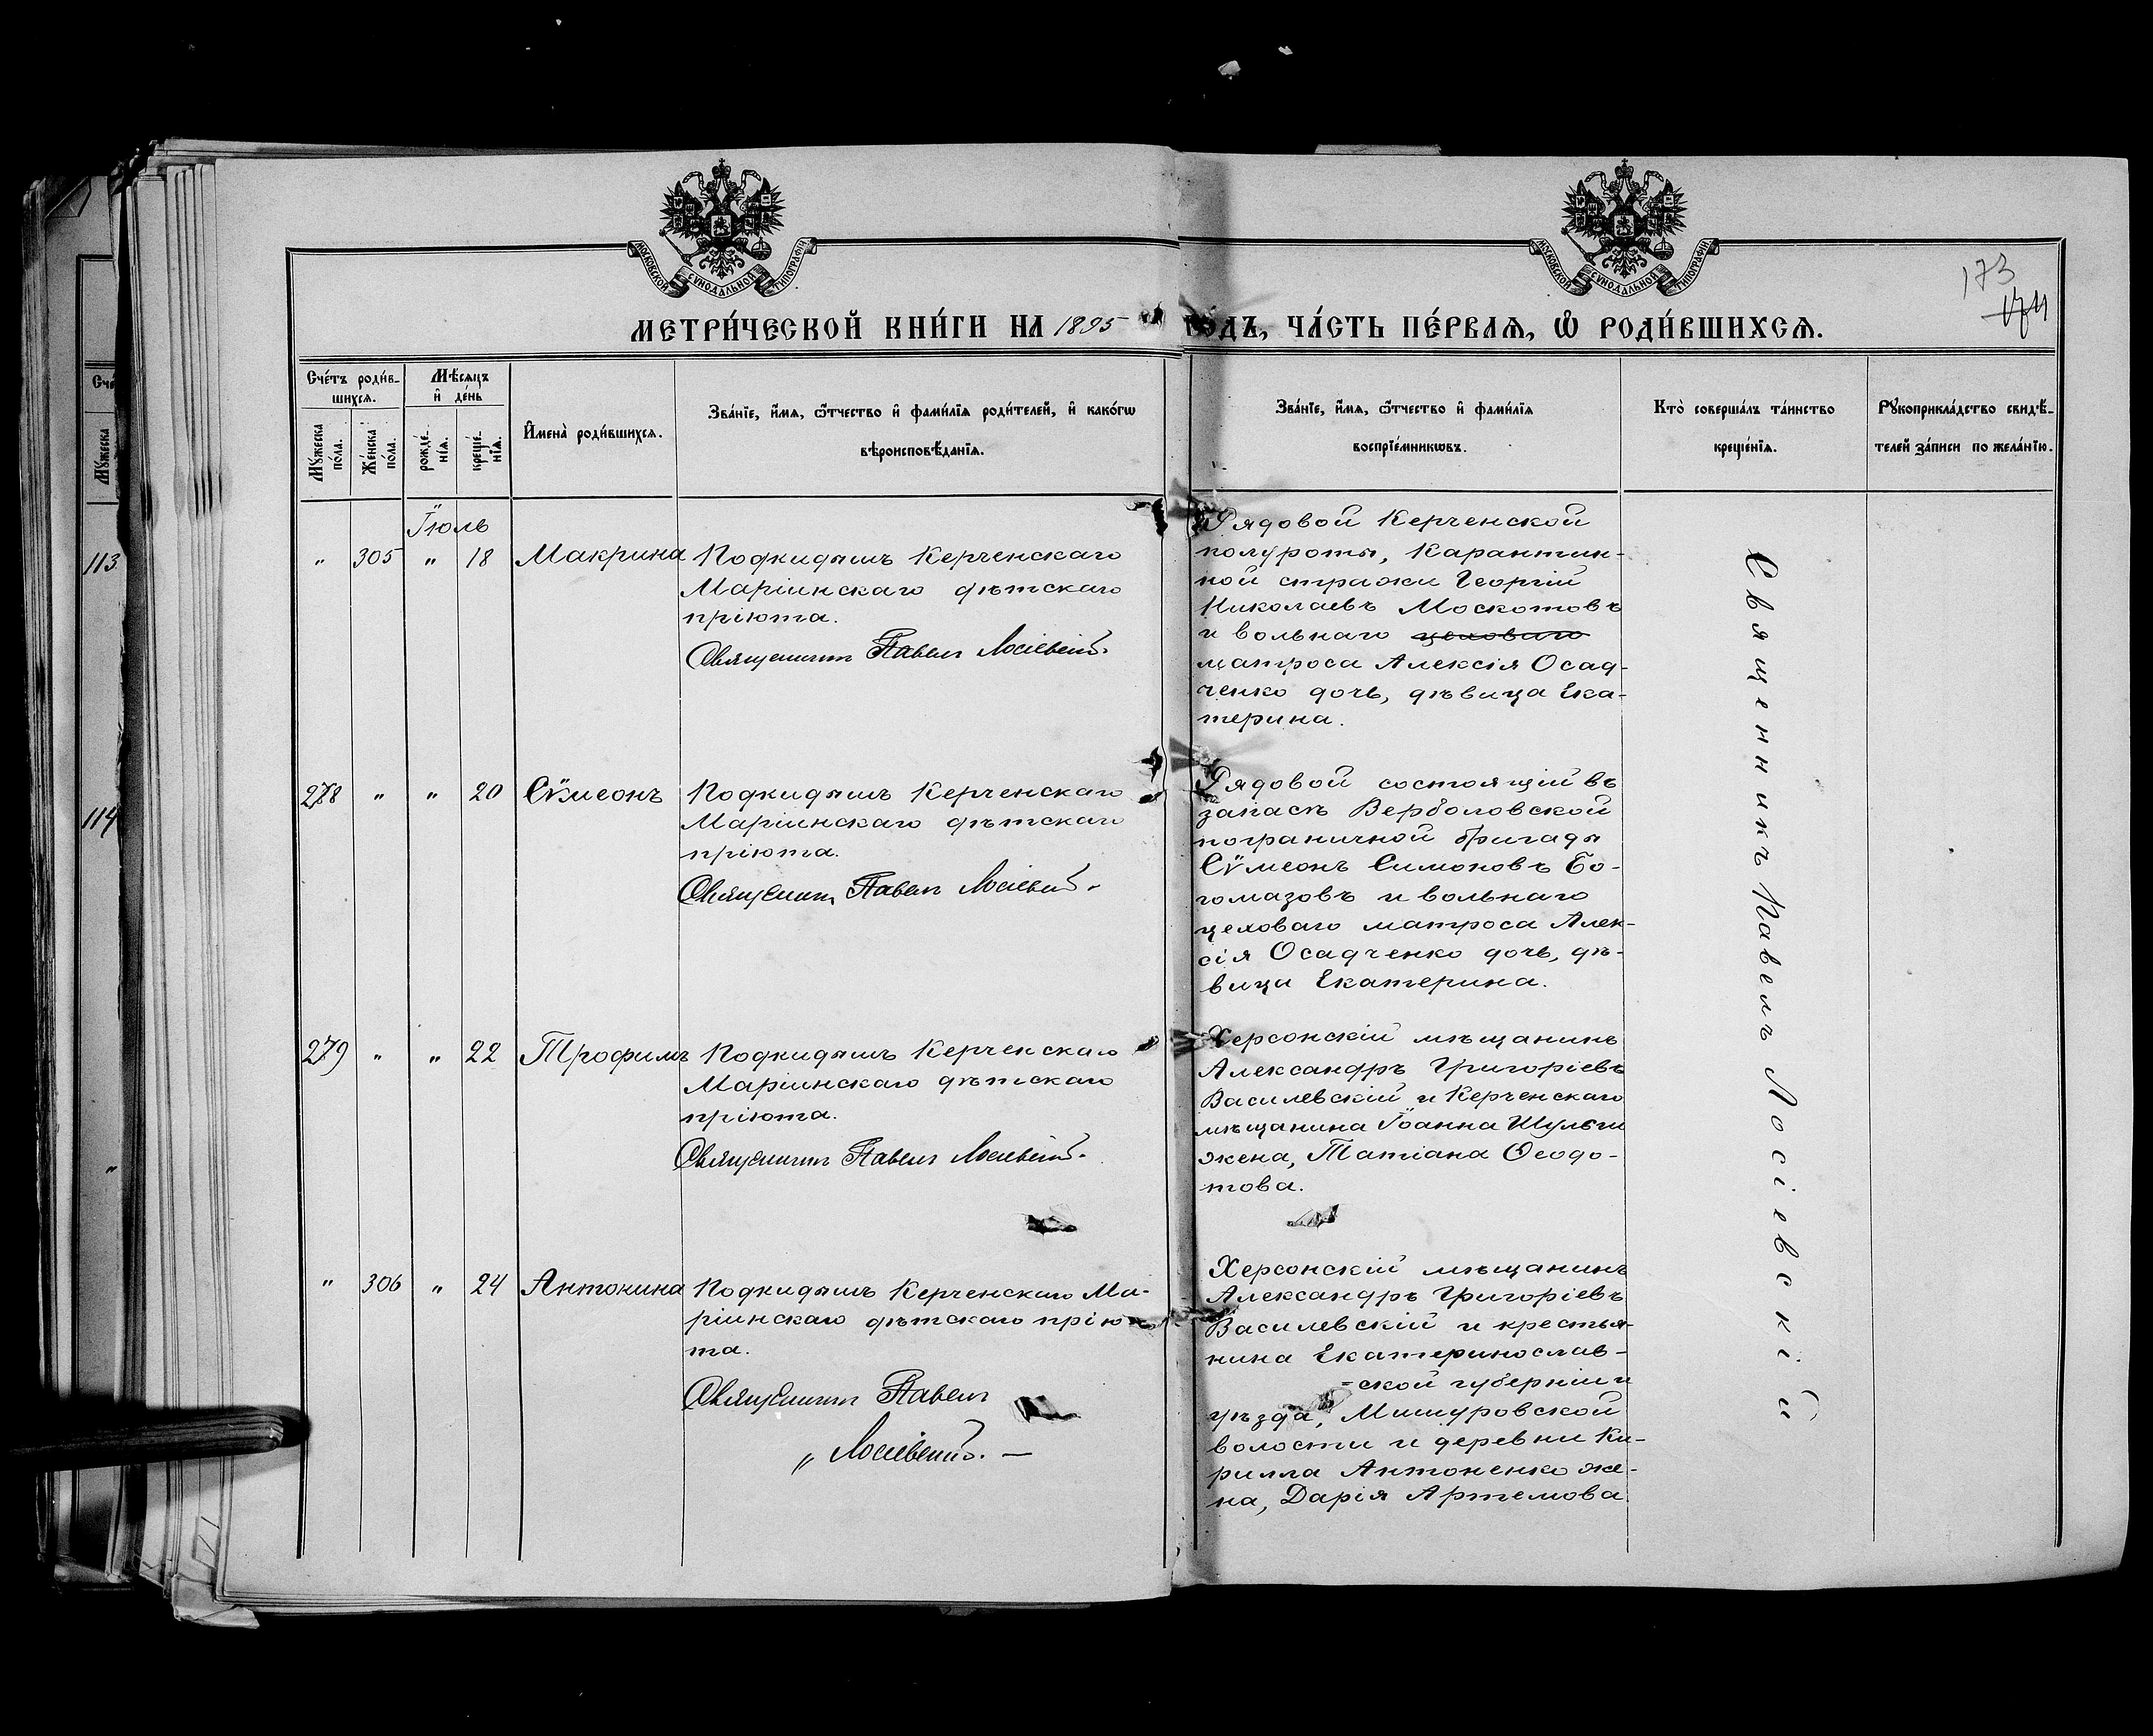 МОСКОВСКОЙ СѴНОДАЛЬНОЙ ТИПОГРАФІИ
МОСКОВСКОЙ СѴНОДАЛЬНОЙ ТИПОГРАФІИ
173
174
МЕТРИ́ЧЕСКОЙ КНИ́ГИ НА 1895 ГО́ДЪ, ЧА́СТЬ ПЕ́РВАЯ, Ѡ҆ РОДИ́ВШИХСЯ.
Сче́тъ роди́в-
шихся.
Мꙋ́жеска по́ла.
Же́нска по́ла.
Мѣ́сяцъ
и҆ де́нь
рожде́-
нія.
креще́-
нія.
И҆мена̀ роди́вшихся.
Зва́нїе, и҆́мя, ѻ҆́тчество и҆ фами́лїя роди́телей, и҆ како́гѡ
вѣроисповѣ́данїя.
Зва́нїе, и҆́мя, ѻ҆́тчество и҆ фами́лїя
воспрїе́мникѡвъ.
Кто̀ соверша́лъ та́инство
креще́нїя.
Рꙋкоприкла́дство свидѣ́-
телей за́писи по жела́нїю.
Іюль
" 305 " 18 Макрина
Подкидышъ Керченскаго
Маріинскаго дѣтскаго
пріюта.
Священникъ Павелъ Лосіевскій.
Рядовой Керченской
полуроты, Карантин-
ной стражи Георгій
Николаевъ Москотовъ
и вольнаго цеховаго
матроса Алексія Осад-
ченко дочь, дѣвица Ека-
терина.
278 " " 20 Сѵмеонъ
Подкидышъ Керченскаго
Маріинскаго дѣтскаго
пріюта.
Священникъ Павелъ Лосіевскій.
Рядовой состоящій въ
запасѣ Верболовской
пограничной бригады
Сѵмеонъ Симоновъ Бо-
гомазовъ и вольнаго
цеховаго матроса Алек-
сія Осадченко дочь, дѣ-
вица Екатерина.
279 " " 22 Трофимъ
Подкидышъ Керченскаго
Маріинскаго дѣтскаго
пріюта.
Священникъ Павелъ Лосіевскій.
Херсонскій мѣщанинъ
Александръ Григоріевъ
Василевскій и Керченскаго
мѣщанина Іоанна Шульги
жена, Татіана Ѳеодо-
това.
" 306 " 24 Антонина
Подкидышъ Керченскаго Ма-
ріинскаго дѣтскаго прію-
та.
Священникъ Павелъ
" Лосіевскій. —
Херсонскій мѣщанинъ
Александръ Григоріевъ
Василевскій и крестья-
нина Екатеринослав-
-ской губерніи и
уѣзда, Мишуровской
волости и деревни Ки-
рилла Антоненко же-
на, Дарія Артемова.
Священникъ Павелъ Лосіевскій
113
114
"